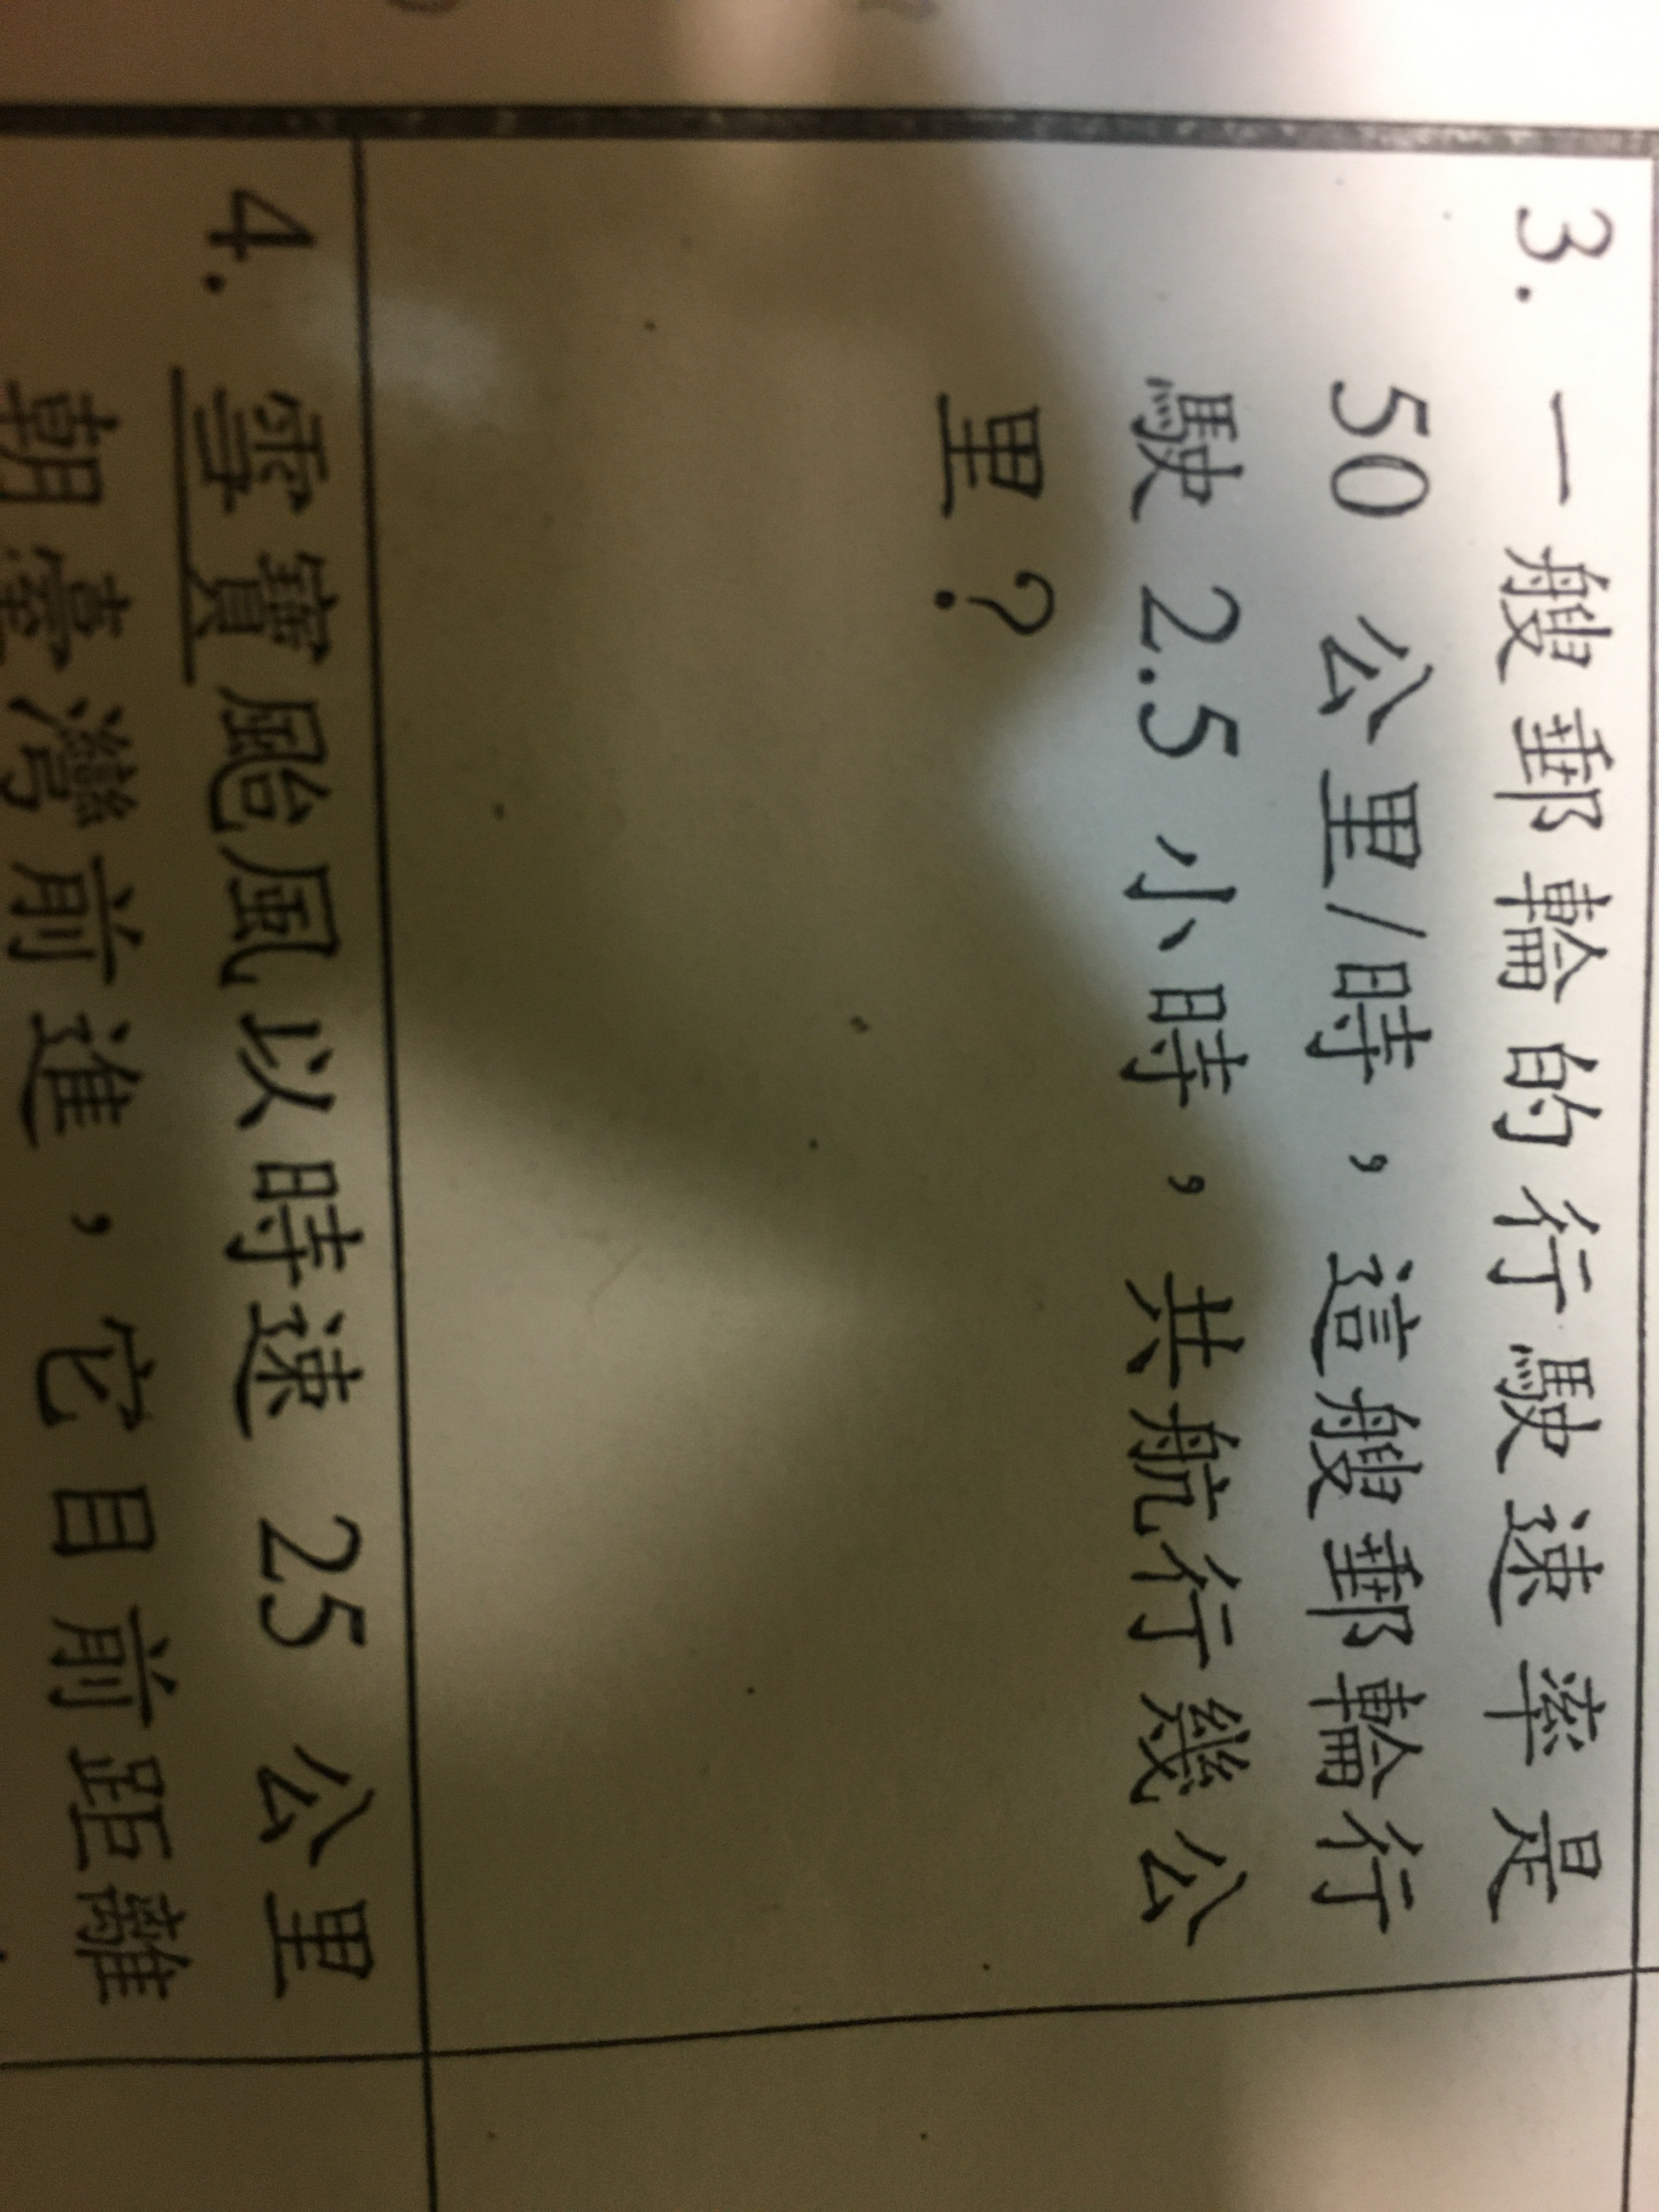 3. 一艘郵輪的行駛速率是
50 公里/時，這艘郵輪行
駛 2.5 小時，共航行幾公
里？
4. 雪寶颱風以時速 25 公里
朝臺灣前進，它目前距離